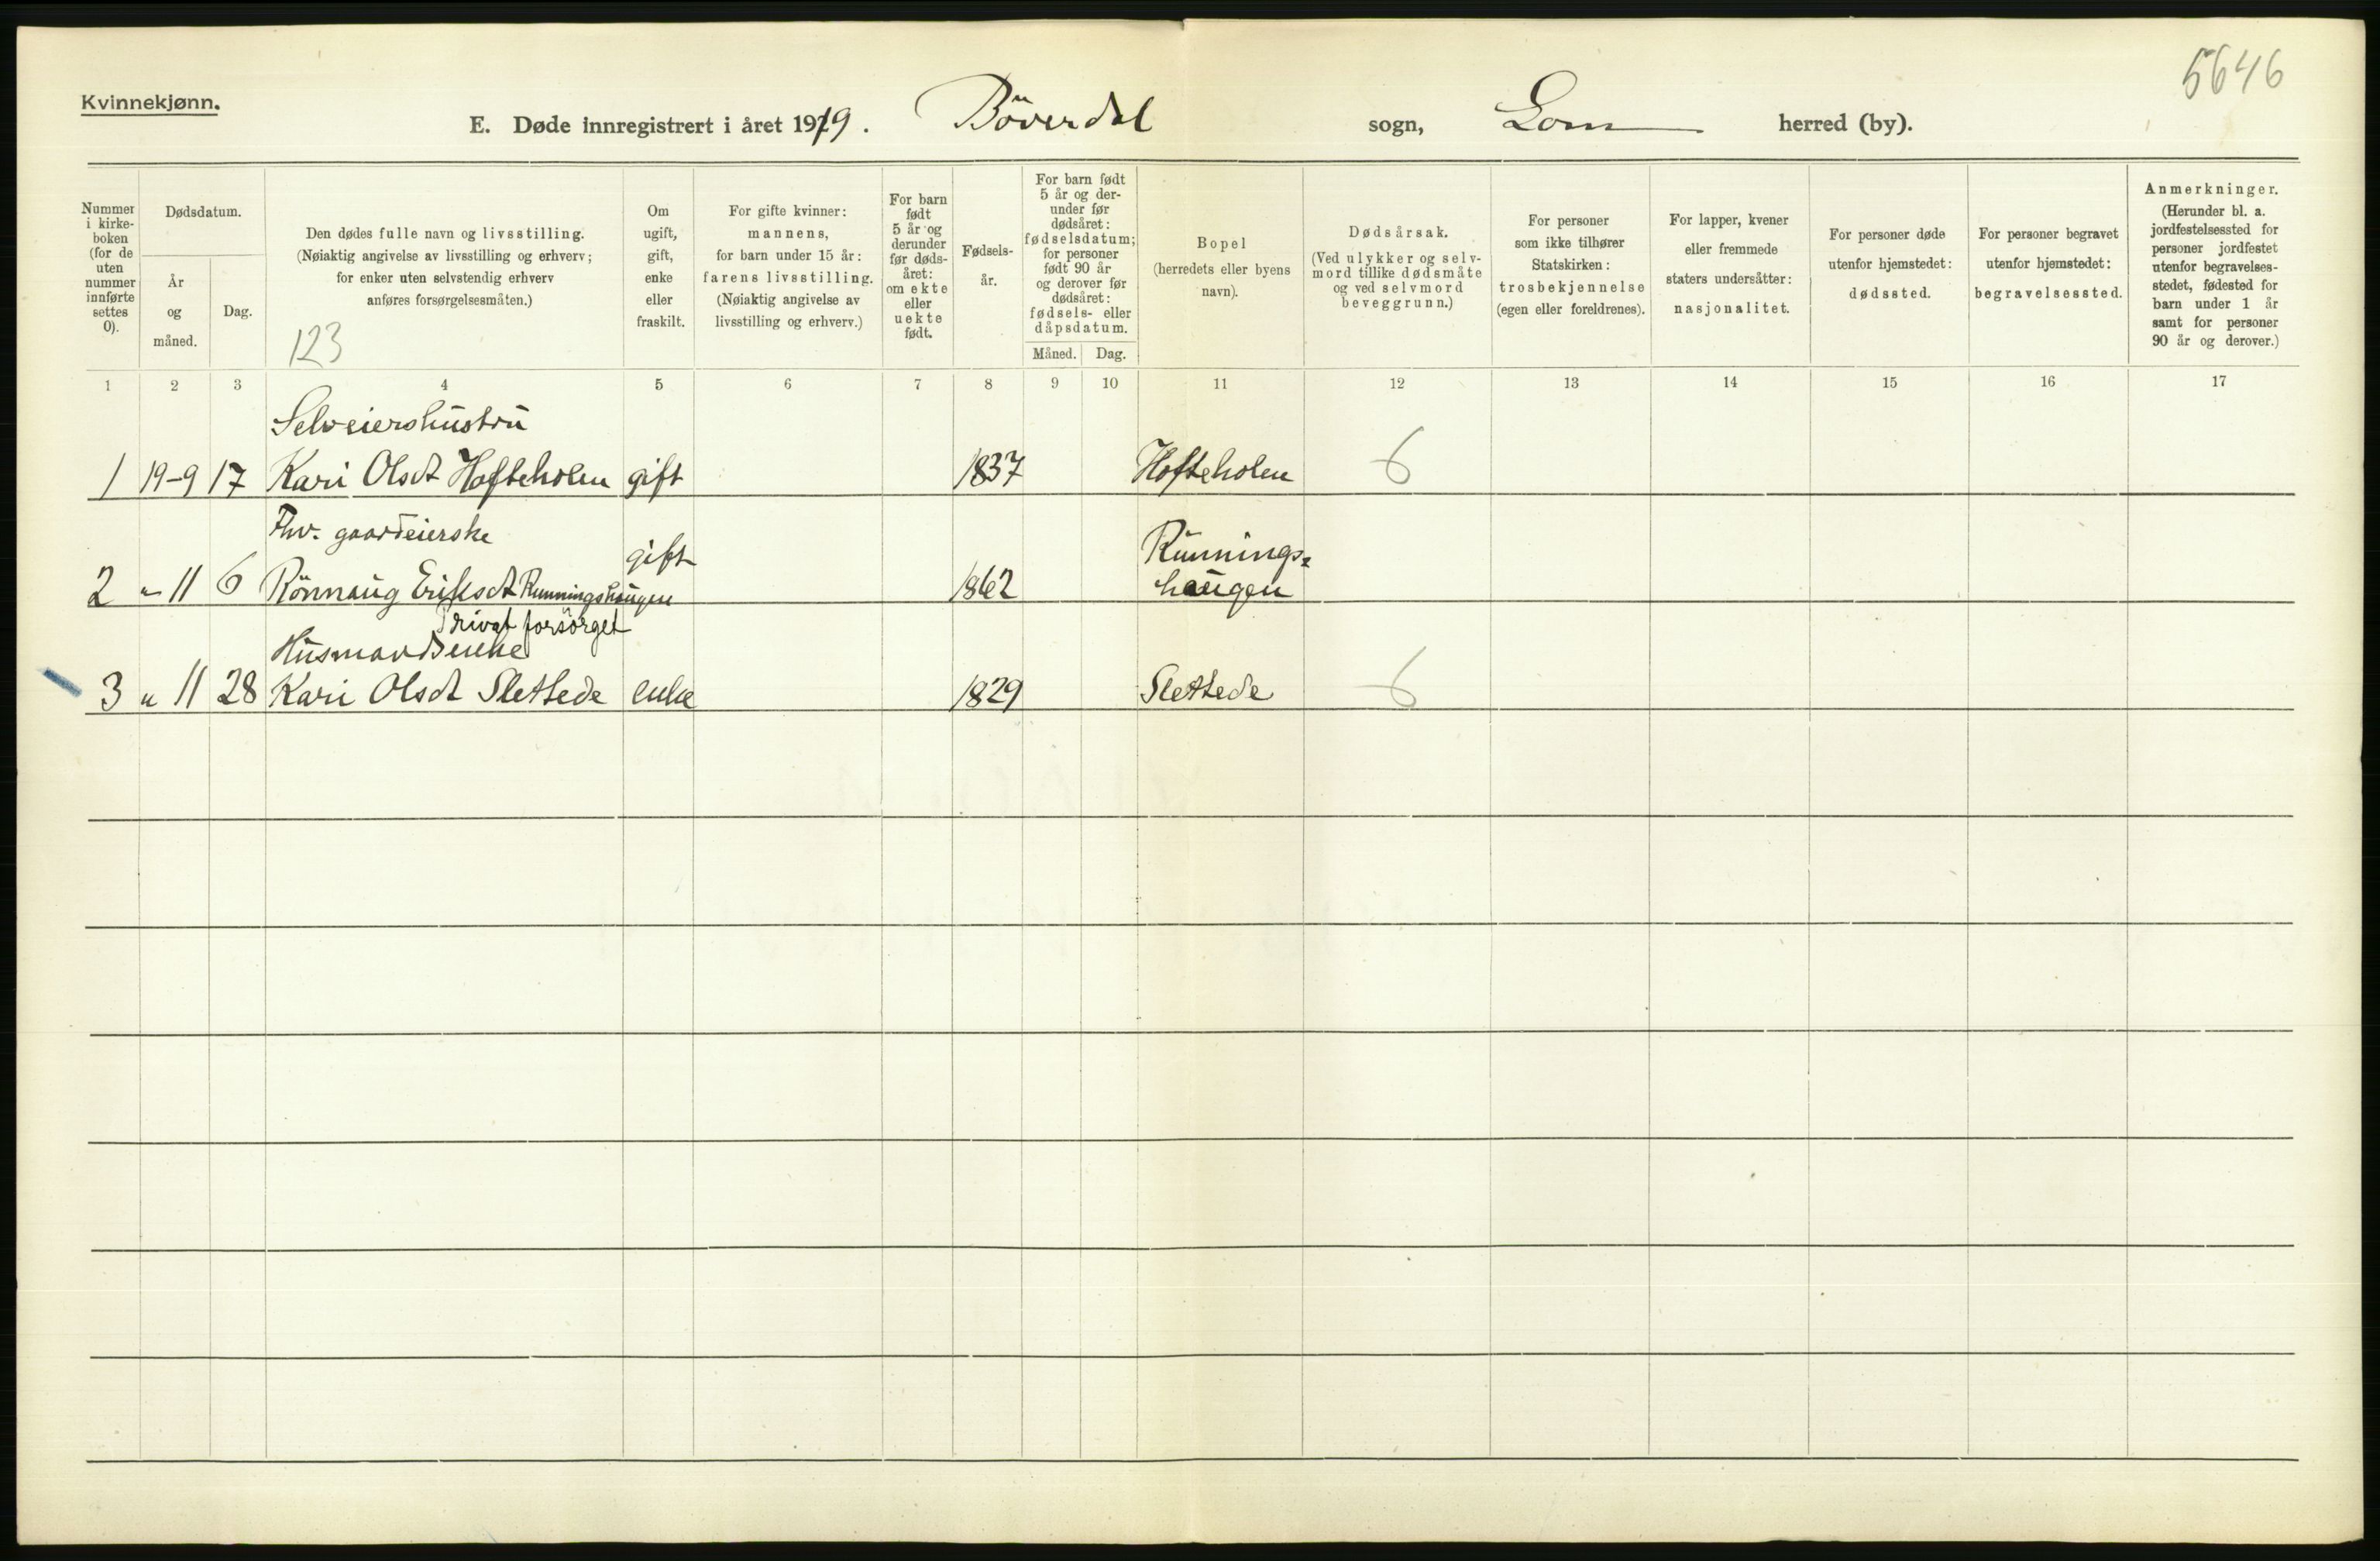 5646
Kvinnekjønn.
E. Døde innregistrert i året 1919. Böverdal sogn, Lom herred (by).
Nummer i kirke- boken (for de uten nummer innførte settes 0).
Dødsdatum.
År og måned.
Dag.
Den dødes fulle navn og livsstilling.
(Nøiaktig angivelse av livsstilling og erhverv;
for enker uten selvstendig erhverv
anføres forsørgelsesmåten.)
123
Om ugift, gift, enke eller fraskilt.
For gifte kvinner:
mannens,
for barn under 15 år:
farens livsstilling.
(Nøiaktig angivelse av
livsstilling og erhverv.)
For barn født 5 år og derunder før døds- året: om ekte eller uekte født.
Fødsels- år.
For barn født
5 år og der-
under før
dødsåret:
fødselsdatum;
for personer
født 90 år
og derover før
dødsåret:
fødsels- eller
dåpsdatum.
Måned. Dag.
Bopel
(herredets eller byens
navn).
Dødsårsak.
(Ved ulykker og selv-
mord tillike dødsmåte
og ved selvmord
beveggrunn.)
For personer
som ikke tilhører
Statskirken:
trosbekjennelse
(egen eller foreldrenes).
For lapper, kvener
eller fremmede
staters undersåtter:
nasjonalitet.
For personer døde
utenfor hjemstedet:
dødssted.
For personer begravet
utenfor hjemstedet:
begravelsessted.
Anmerkninger.
(Herunder bl. a.
jordfestelsessted for
personer jordfestet
utenfor begravelses-
stedet, fødested for
barn under 1 år
samt for personer
90 år og derover.)
1 2 3 4 5 6 7 8 9 10 11 12 13 14 15 16 17
Selveiershustru
1 19-9 17 Kari Olsdt Hofteholen gift 1837 Hofteholen 6
Fhv. gaardeierske
gift Runnings-
2 " 11 6 Rönnaug Eriksdt Runningshaugen 1862 haugen
Privat forsörget
Husmandsenke
3 " 11 28 Kari Olsdt Slettede enke 1829 Slettede 6